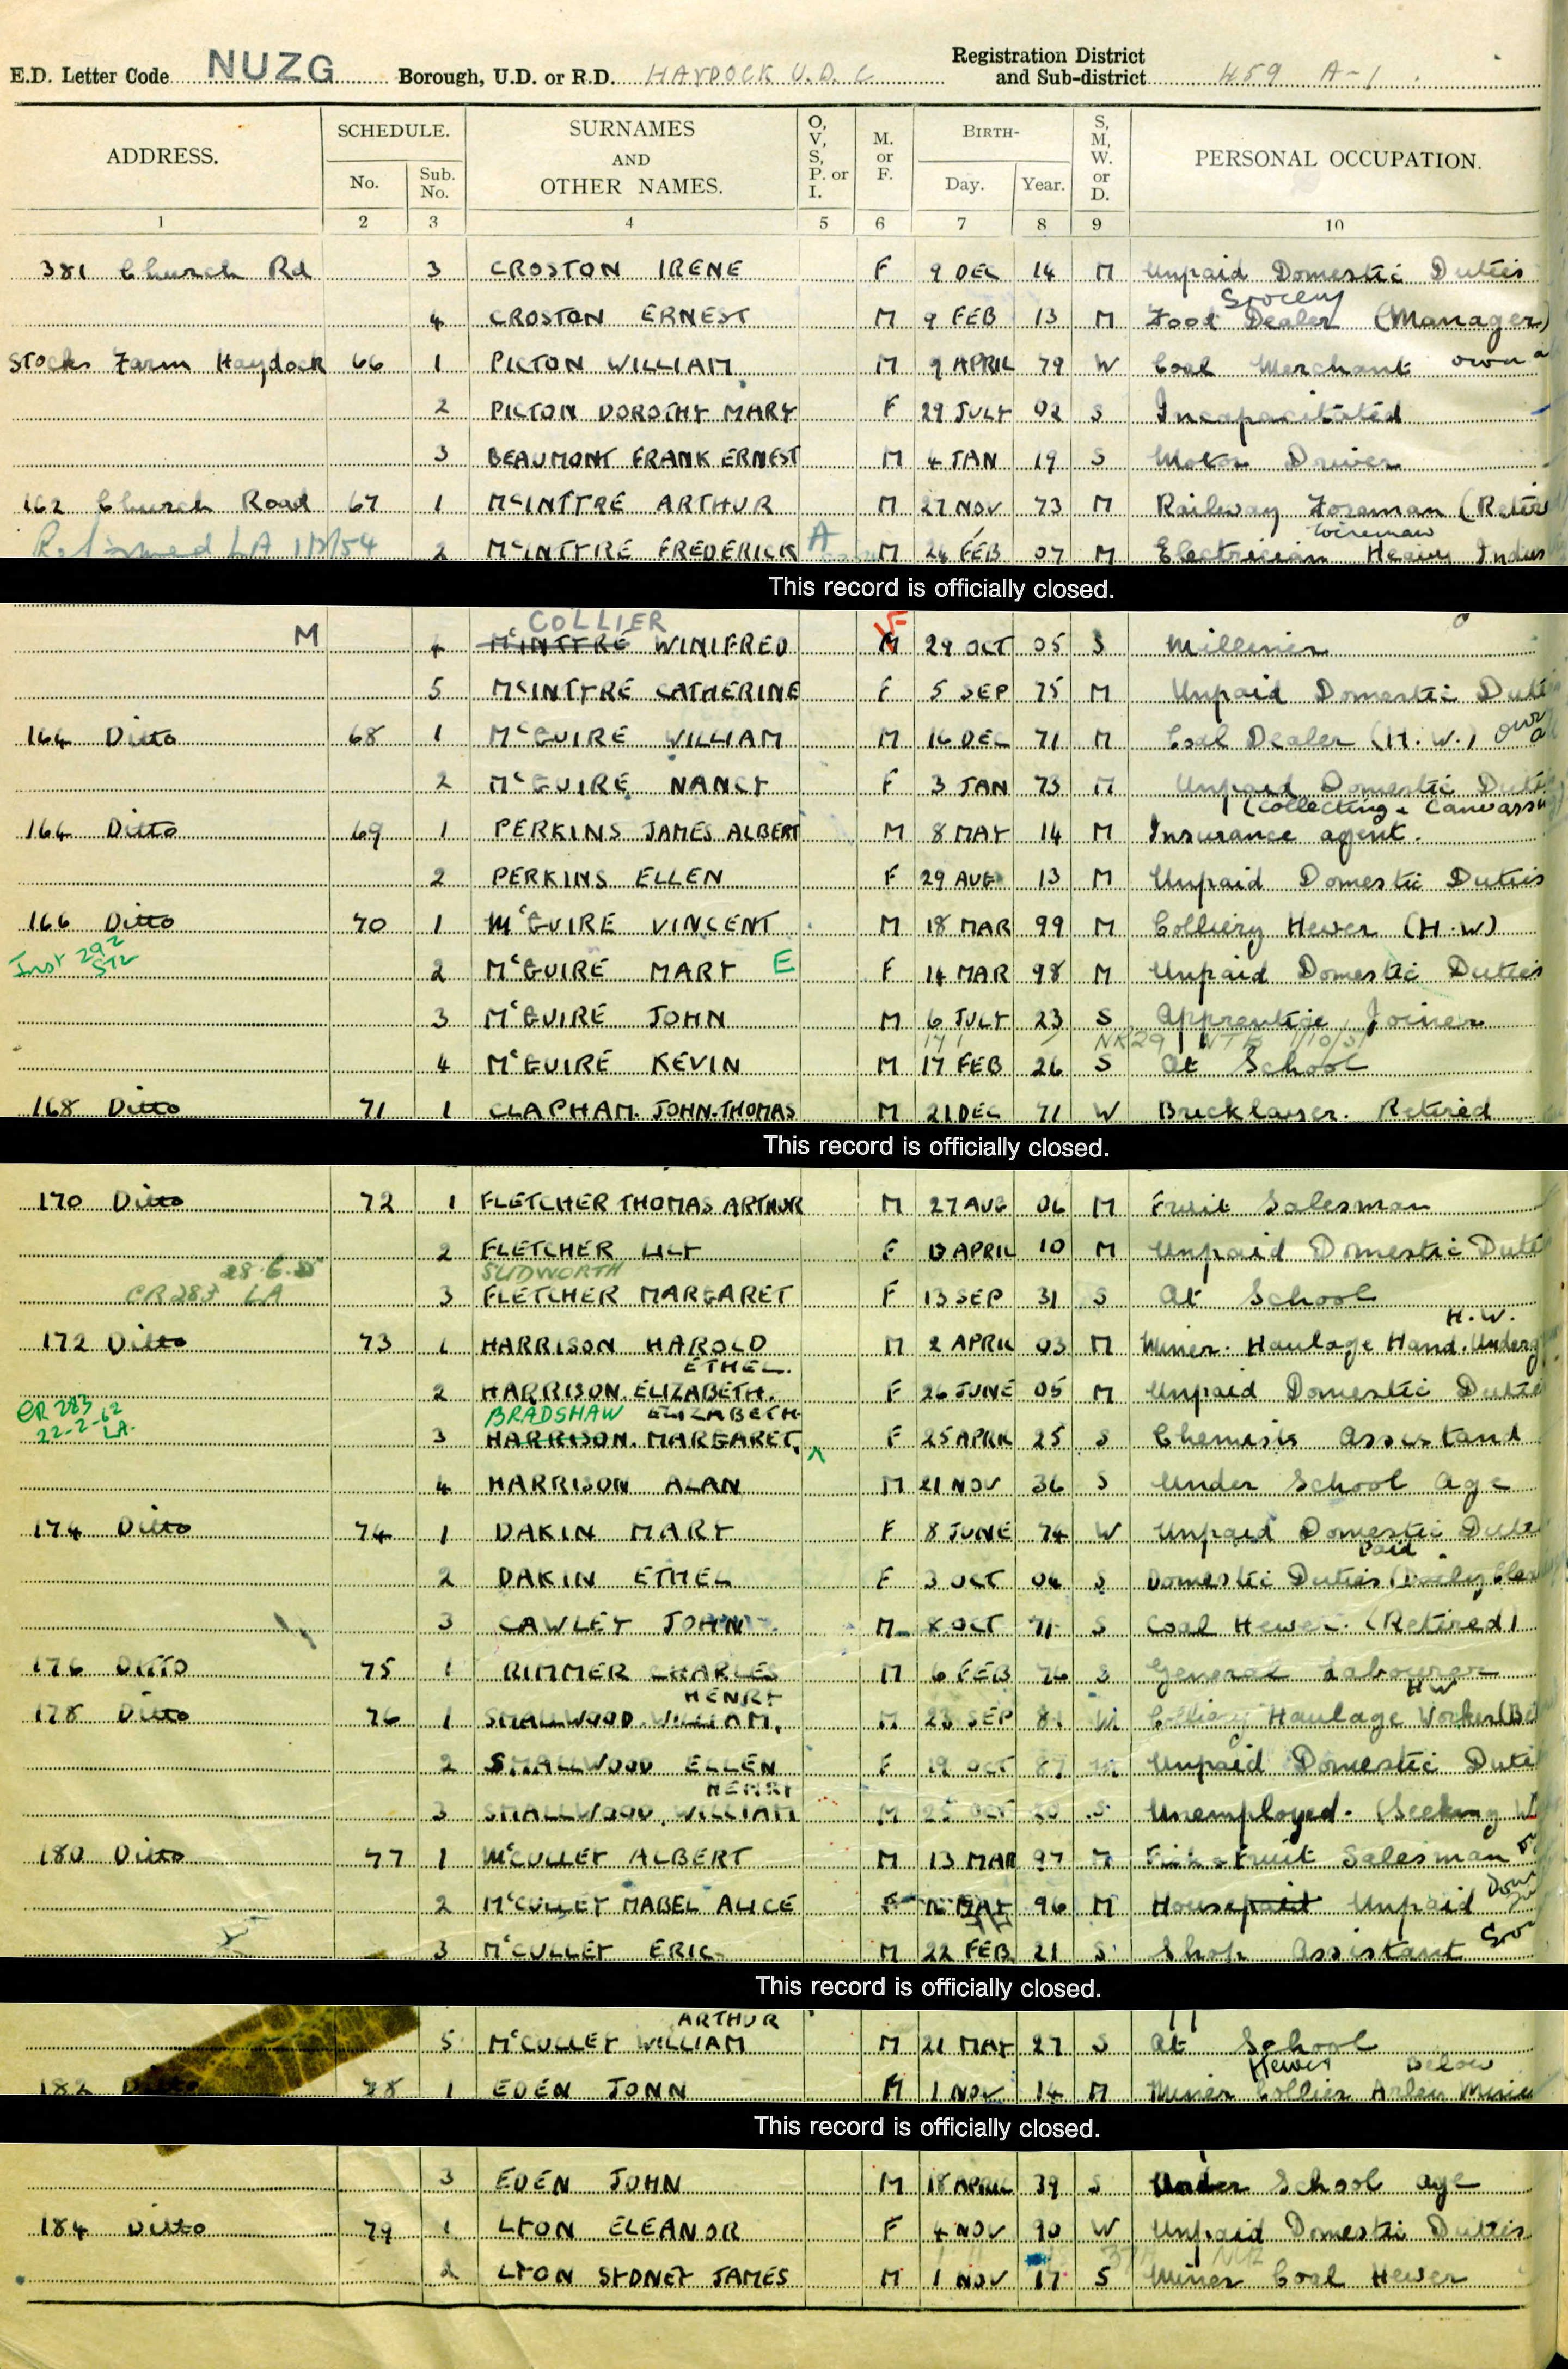 E.D. Letter Code NUZG Borough, U.D. or R.D. HAYDOCK U.D.C Registration District and Sub-district 459 A-1
ADDRESS. SCHEDULE. No. Sub. No. SURNAMES AND OTHER NAMES. O, V, S, P. or I. M. or F. BIRTH- Day. Year. S, M, W. or D. PERSONAL OCCUPATION.
1 2 3 4 5 6 7 8 9 10
381 Church Rd 3 CROSTON IRENE F 9 DEC 14 M Unpaid Domestic Duties
Grocery
4 CROSTON ERNEST M 9 FEB 13 M Food Dealer (Manager)
Stocks Farm Haydock 66 1 PICTON WILLIAM M 9 APRIL 79 W Coal Merchant own a
2 PICTON DOROTHY MARY F 29 JULY 02 S Incapacitated
3 BEAUMONT FRANK ERNEST M 4 JAN 19 S Motor Driver
162 Church Road 67 1 McINTYRE ARTHUR M 27 NOV 73 M Railway Foreman (Retir
Wireman
LA 2 McINTYRE FREDERICK A M 24 FEB 07 M Electrician Heavy Indus
This record is officially closed.
COLLIER
M 4 McINTYRE WINIFRED M F 29 OCT 05 S Milliner
5 McINTYRE CATHERINE F 5 SEP 75 M Unpaid Domestic Duti
164 Ditto 68 1 McGUIRE WILLIAM M 16 DEC 71 M Coal Dealer (H.W.) own a
2 McGUIRE NANCY F 3 JAN 73 M Unpaid Domestic Duti
(Collecting & Canvassin
164 Ditto 69 1 PERKINS JAMES ALBERT M 8 MAY 14 M Insurance agent.
2 PERKINS ELLEN F 29 AUG 13 M Unpaid Domestic Duties
166 Ditto 70 1 McGUIRE VINCENT M 18 MAR 99 M Colliery Hewer (H.W)
Inst 292 ST2 2 McGUIRE MARY E F 14 MAR 98 M Unpaid Domestic Duties
3 McGUIRE JOHN M 6 JULY 23 S Apprentice Joiner
4 McGUIRE KEVIN M 17 FEB 26 S At School
168 Ditto 71 1 CLAPHAM. JOHN.THOMAS M 21 DEC 71 W Bricklayer. Retired
This record is officially closed.
170 Ditto 72 1 FLETCHER THOMAS ARTHUR M 27 AUG 06 M Fruit Salesman
2 FLETCHER LILY F 13 APRIL 10 M Unpaid Domestic Duti
SUDWORTH
CR 283 LA 3 FLETCHER MARGARET F 13 SEP 31 S At School
H.W.
172 Ditto 73 1 HARRISON HAROLD M 2 APRIL 03 M Miner. Haulage Hand. Underg
ETHEL.
2 HARRISON. ELIZABETH. F 26 JUNE 05 M Unpaid Domestic Dutie
CR 283 BRADSHAW ELIZABETH
22-2-62 LA. 3 HARRISON. MARGARET, F 25 APRIL 25 S Chemists Assistant
4 HARRISON ALAN M 21 NOV 36 S Under School Age
174 Ditto 74 1 DAKIN MARY F 8 JUNE 74 W Unpaid Domestic Duti
Paid
2 DAKIN ETHEL F 3 OCT 04 S Domestic Duties (Daily Clea
3 CAWLEY JOHN M 8 OCT 71 S Coal Hewer. (Retired)
176 Ditto 75 1 RIMMER CHARLES M 6 FEB 76 S General Labourer
HENRY HW
178 Ditto 76 1 SMALLWOOD. WILLIAM. M 23 SEP 81 M Colliery Haulage Worker (Be
2 SMALLWOOD ELLEN F 19 OCT 87 M Unpaid Domestic Duti
HENRY
3 SMALLWOOD, WILLIAM M 25 OCT S Unemployed. (Seeking W
180 Ditto 77 1 McCULLEY ALBERT M 13 MAR 97 M Fish & Fruit Salesman
2 McCULLEY MABEL ALICE F MAY 96 M Housepaid Unpaid
3 McCULLEY ERIC M 22 FEB 21 S Shop Assistant
This record is officially closed.
ARTHUR
5 McCULLEY WILLIAM M 21 MAY 27 S At School
Hewer Below
182 Ditto 78 1 EDEN JOHN M 1 NOV 14 M Miner Collier Arley Mine
This record is officially closed.
3 EDEN JOHN M 18 APRIL 39 S Under School age
184 Ditto 79 1 LYON ELEANOR F 4 NOV 90 W Unpaid Domestic Duties
2 LYON SYDNEY JAMES M 1 NOV 17 S Miner Coal Hewer